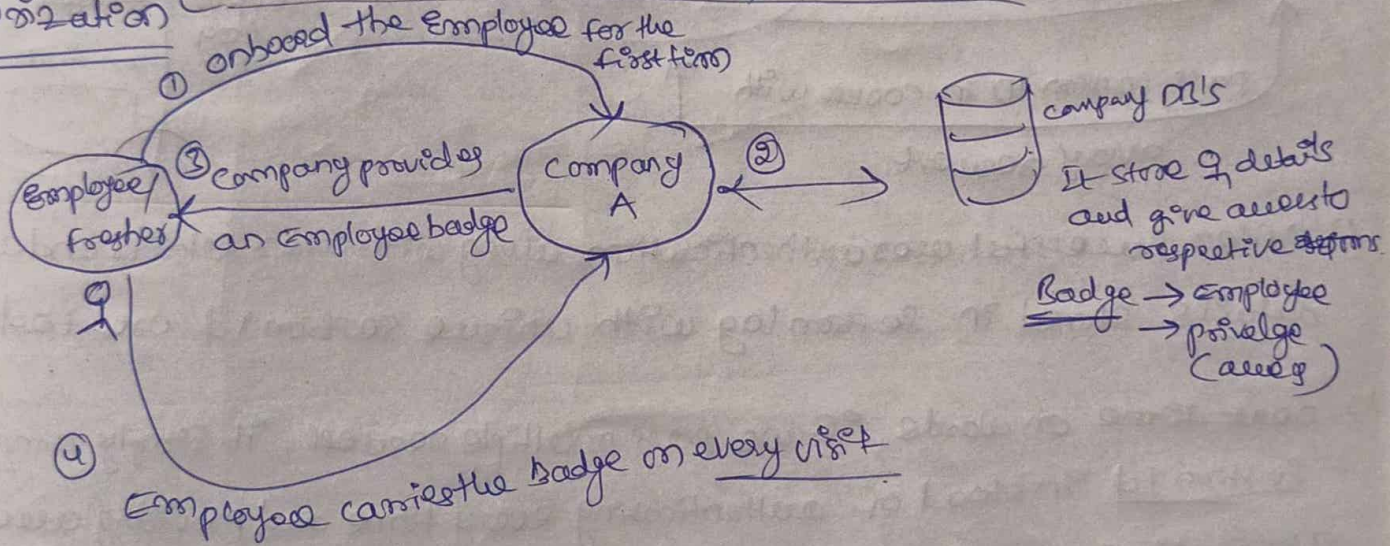 ization
① onboard the Employee for the
first tim
Employee/
fresher
③ company provides
an Employee badge
Company
A
②
company DB's
It store & details
and give access to
respective
Badge → Employee
→ privelge
(access)
④
Employee carries the Badge on every visit